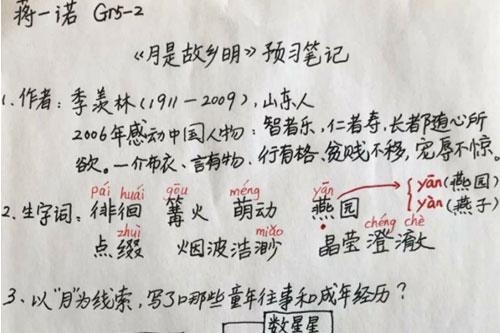 蒋一诺 Gr5-2
《月是故乡明》预习笔记
1.作者:季羡林(1911-2009),山东人
2006年感动中国人物:智者乐,仁者寿,长者随心所
欲。一介布衣、言有物、行有格、贫贱不移,宠辱不惊。
pái huái gōu méng yān yān(燕园)
2.生字词:徘徊 篝火 萌动 燕园 yàn(燕子)
zhuì miǎo chéng chè
点缀 烟波浩渺 晶莹澄澈
3、以"月"为线索,写了哪些童年往事和成年经历?
数星星